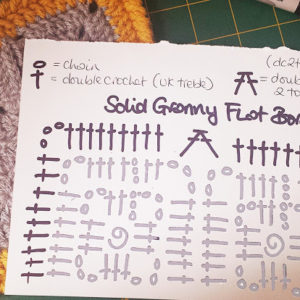 = chain
(dc2t
= double crochet (UK treble)
= doub
2 to
Solid Granny Flat Bor